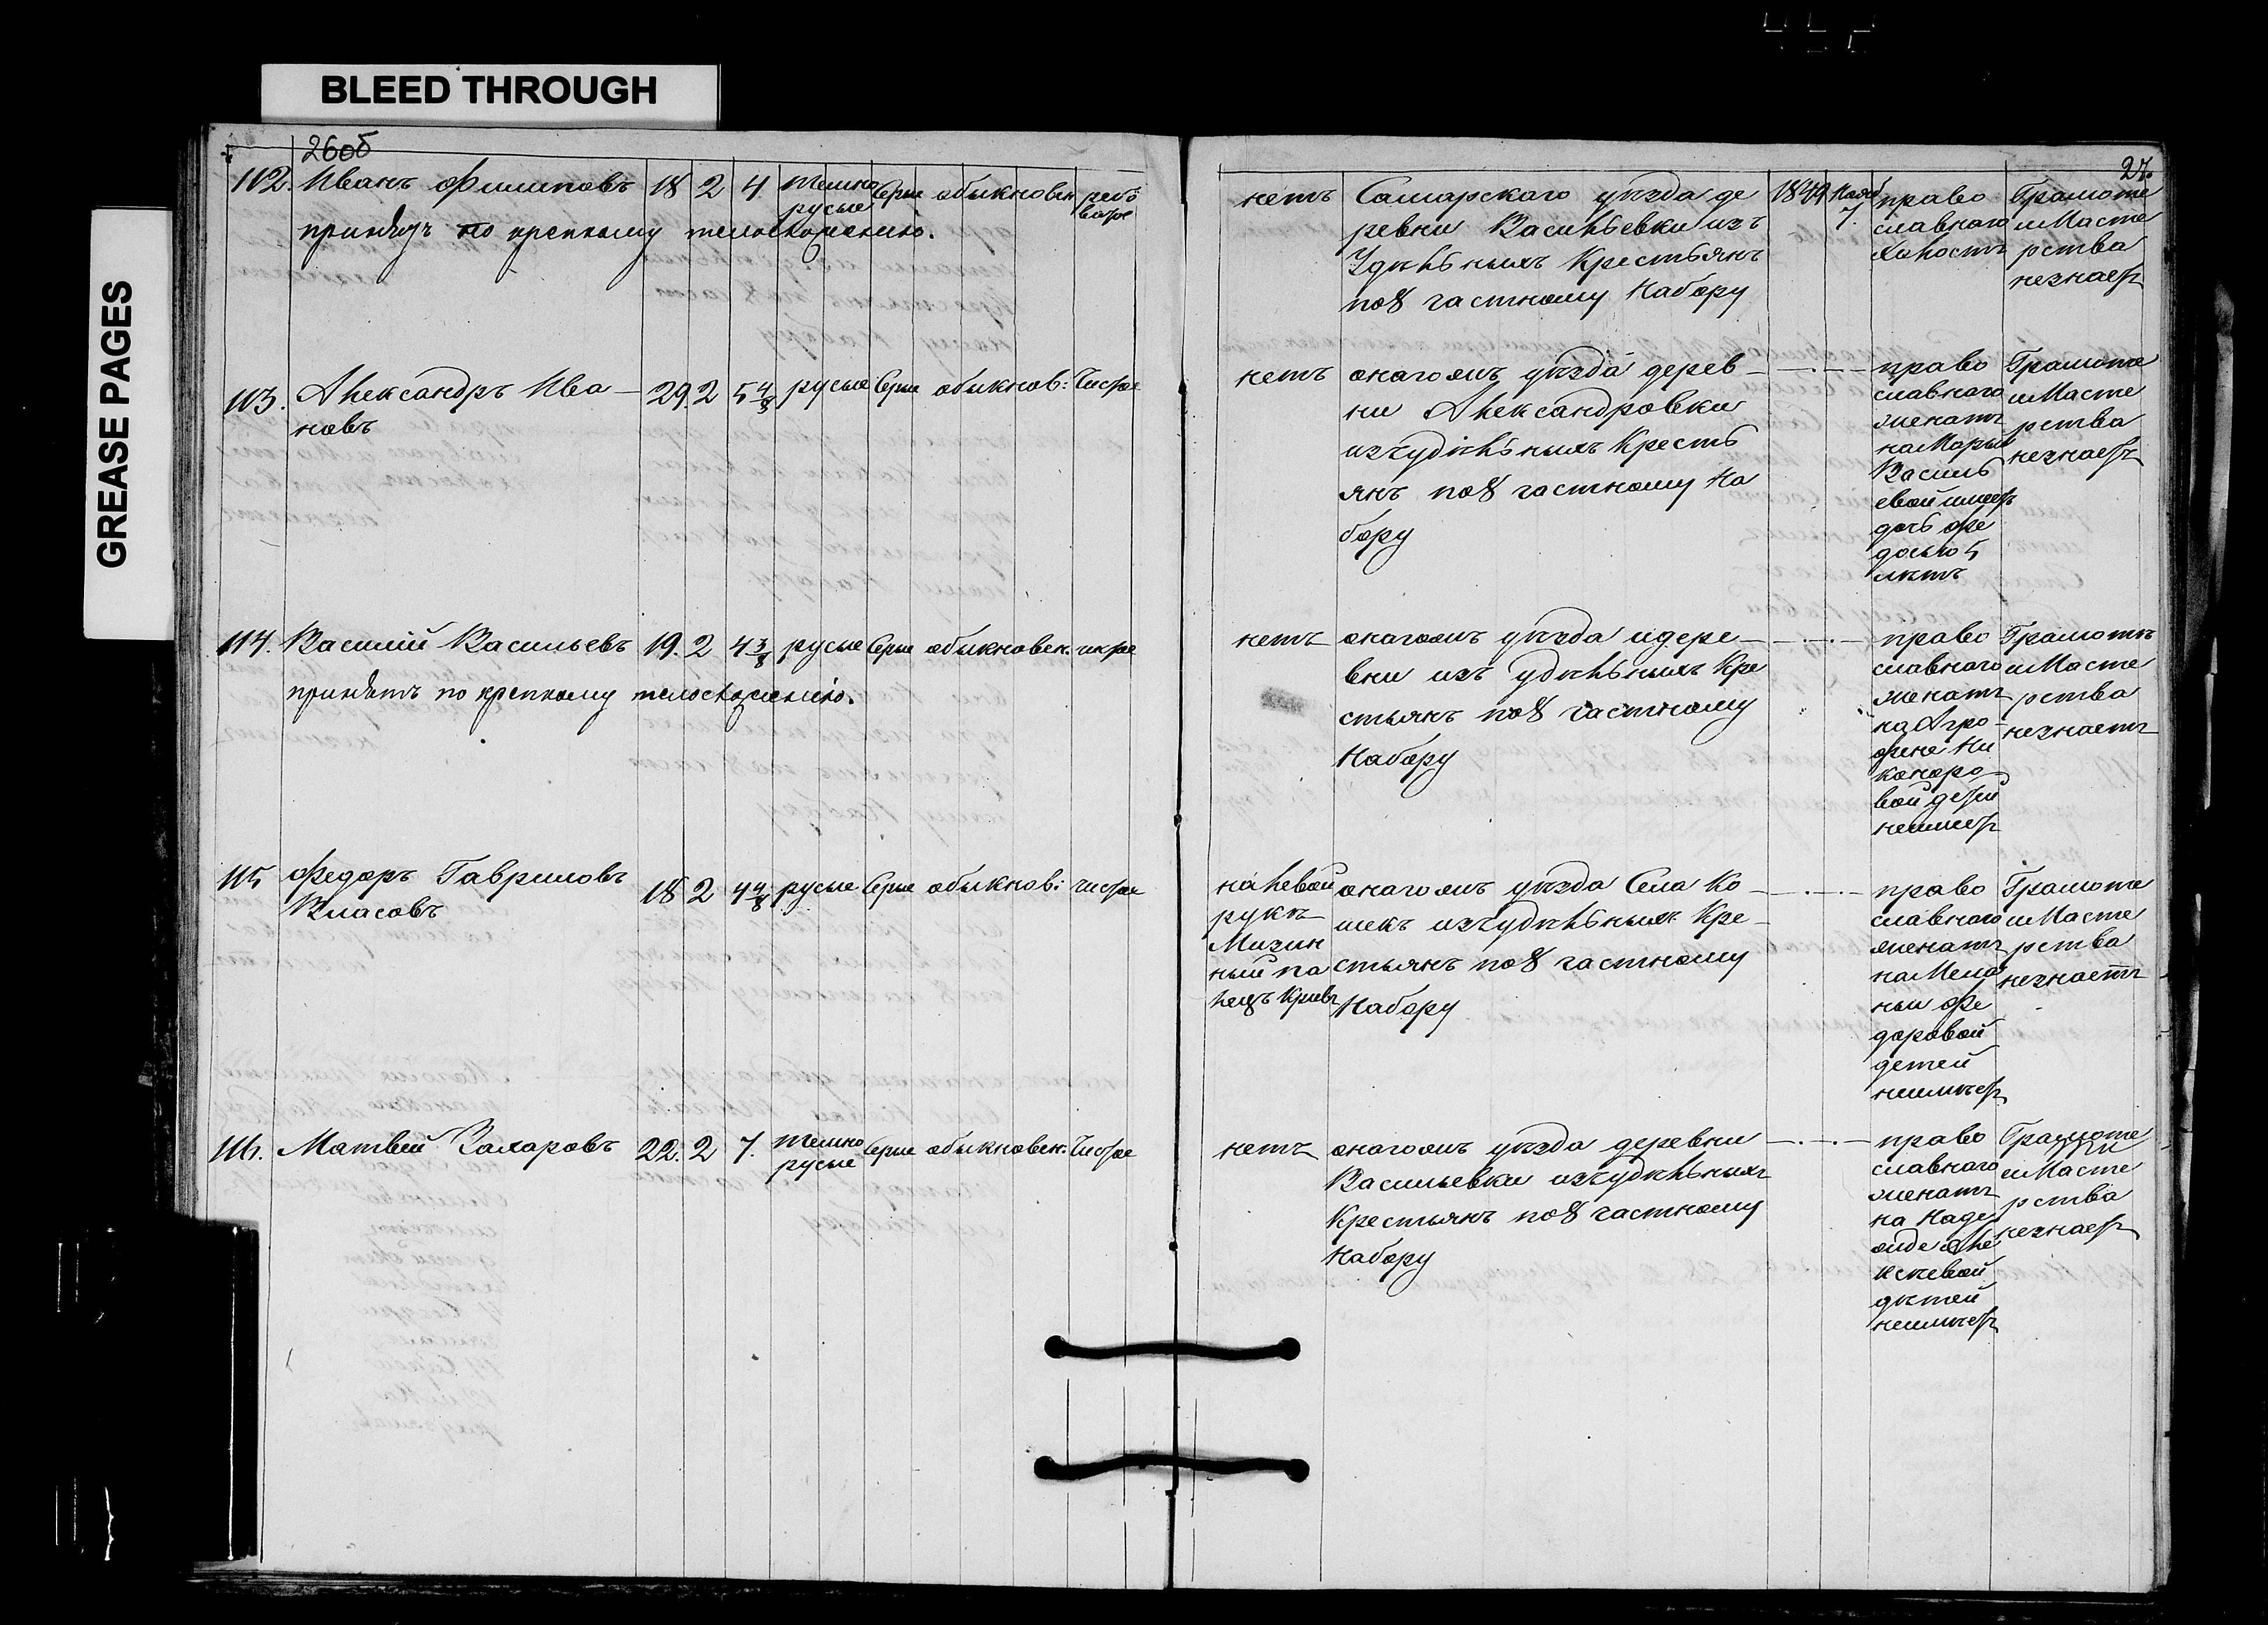 BLEED THROUGH
GREASE PAGES
26об
112. Иванъ Филиповъ 18 2 4 темно русые Серые обыкновен рябо ватое
принятъ по крепкому телосложению.
нетъ Самарскаго уѣзда де
ревни Васильевки изъ
Удѣльныхъ Крестьянъ
по 8 частному Набору
1849 Нояб 7.
право
славнаго
Холостъ
Грамоте
и Масте
рства
незнаетъ
27.
113. Александръ Ива
новъ
29. 2 5 4/8 русые Серые обыкнов: Чистое
нетъ онагожъ уѣзда дерев
ни Александровки
изъ удѣльныхъ Кресть
янъ по 8 частному На
бору
право
славнаго
женатъ
на Марье
Василь
евой имеетъ
дочь Фе
досью 5
летъ
Грамоте
и Масте
рства
незнаетъ
114. Василий Васильевъ 19. 2 4 3/8 русые Серые обыкновен. чистое
принятъ по крепкому телосложению.
нетъ онагожъ уѣзда и дере
вни изъ удѣльныхъ Кре
стьянъ по 8 частному
Набору
право
славнаго
женатъ
на Агро
фене Ни
каноро
вой детей
неимеетъ
Грамотѣ
и Масте
рства
незнаетъ
115 Федоръ Гавриловъ
Власовъ
18 2 4 4/8 русые Серые обыкнов: чистое
на левой
рукѣ
Мизин
ный па
лецъ Кривъ
онагожъ уѣзда Села Ко
шекъ изъ удѣльныхъ Кре
стьянъ по 8 частному
Набору
право
славнаго
женатъ
на Мела
ньи Фе
доровой
детей
неимѣетъ
Грамоте
и Масте
рства
незнаетъ
116. Матвей Захаровъ 22. 2 7. темно русые Серые обыкновен. Чистое
нетъ онагожъ уѣзда деревни
Васильевки изъ удѣльныхъ
Крестьянъ по 8 частному
Набору
право
славнаго
женатъ
на Наде
жде Але
ксевой
дѣтей
неимѣетъ
Грамоте
и Масте
рства
незнаетъ